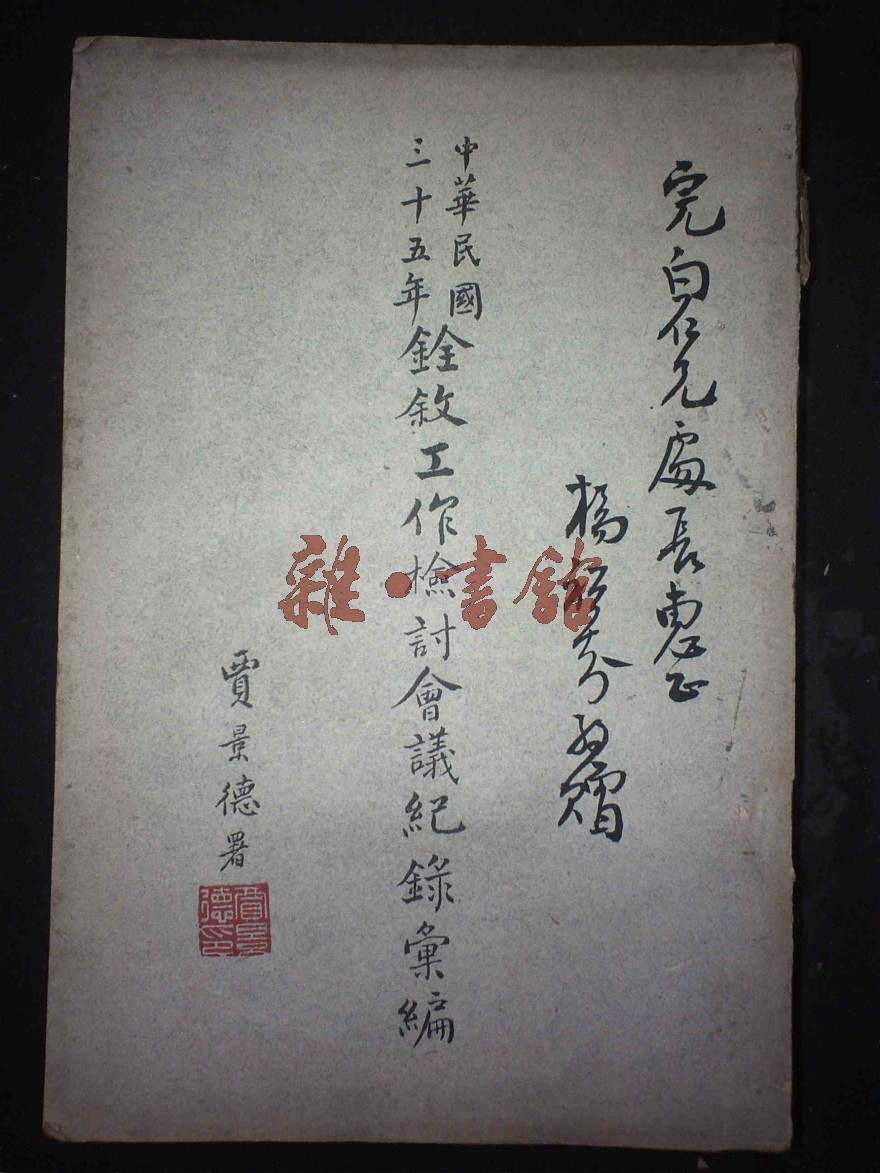 完白仁兄處長惠正
楊 芬 贈
中華民國
三十五年
銓敘工作檢討會議紀錄彙編
賈景德署
賈景德印
雜·書館